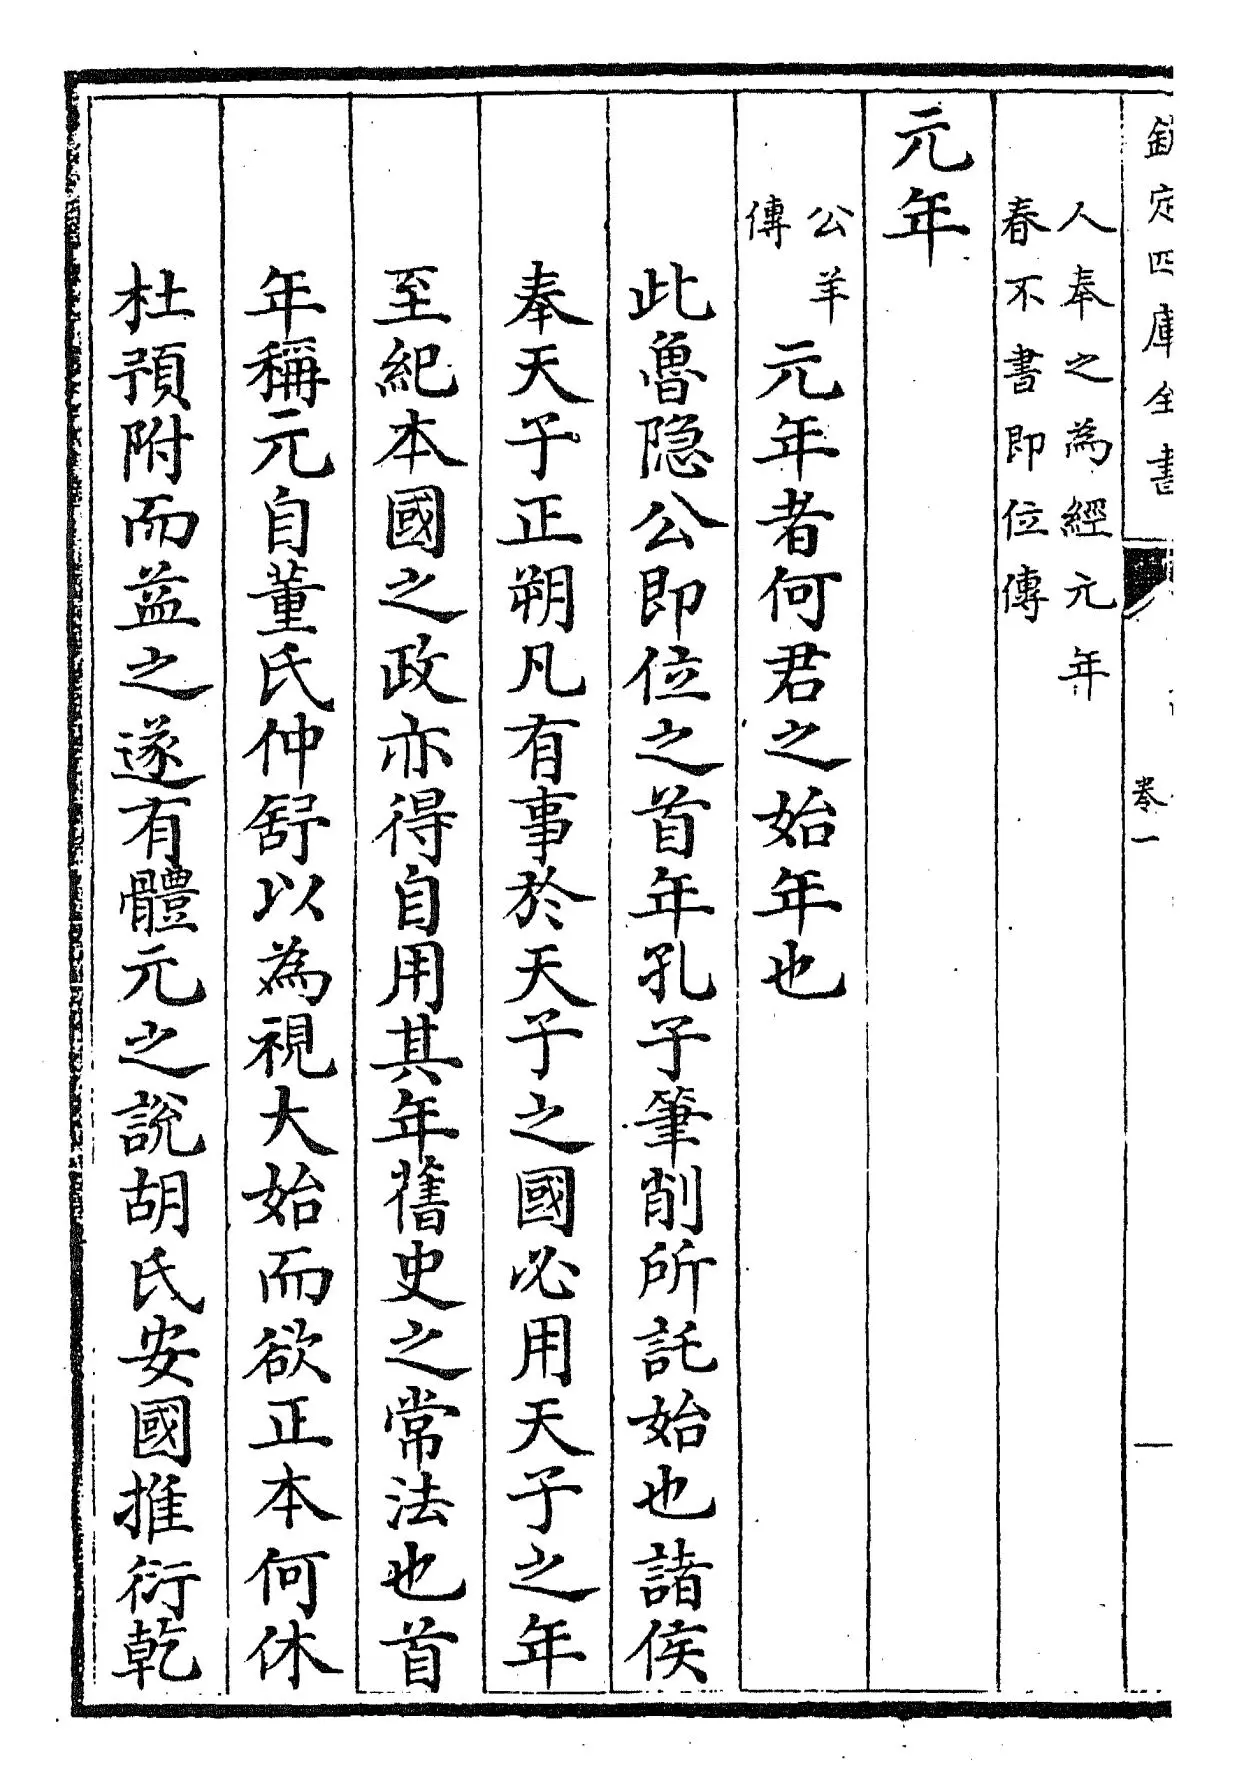 欽定四庫全書
卷一
人奉之為經元年
春不書即位傳
元年
公羊
傳
元年者何君之始年也
此魯隐公即位之首年孔子筆削所託始也諸侯
奉天子正朔凡有事於天子之國必用天子之年
至紀本國之政亦得自用其年舊史之常法也首
年稱元自董氏仲舒以為視大始而欲正本何休
杜預附而益之遂有體元之說胡氏安國推衍乾